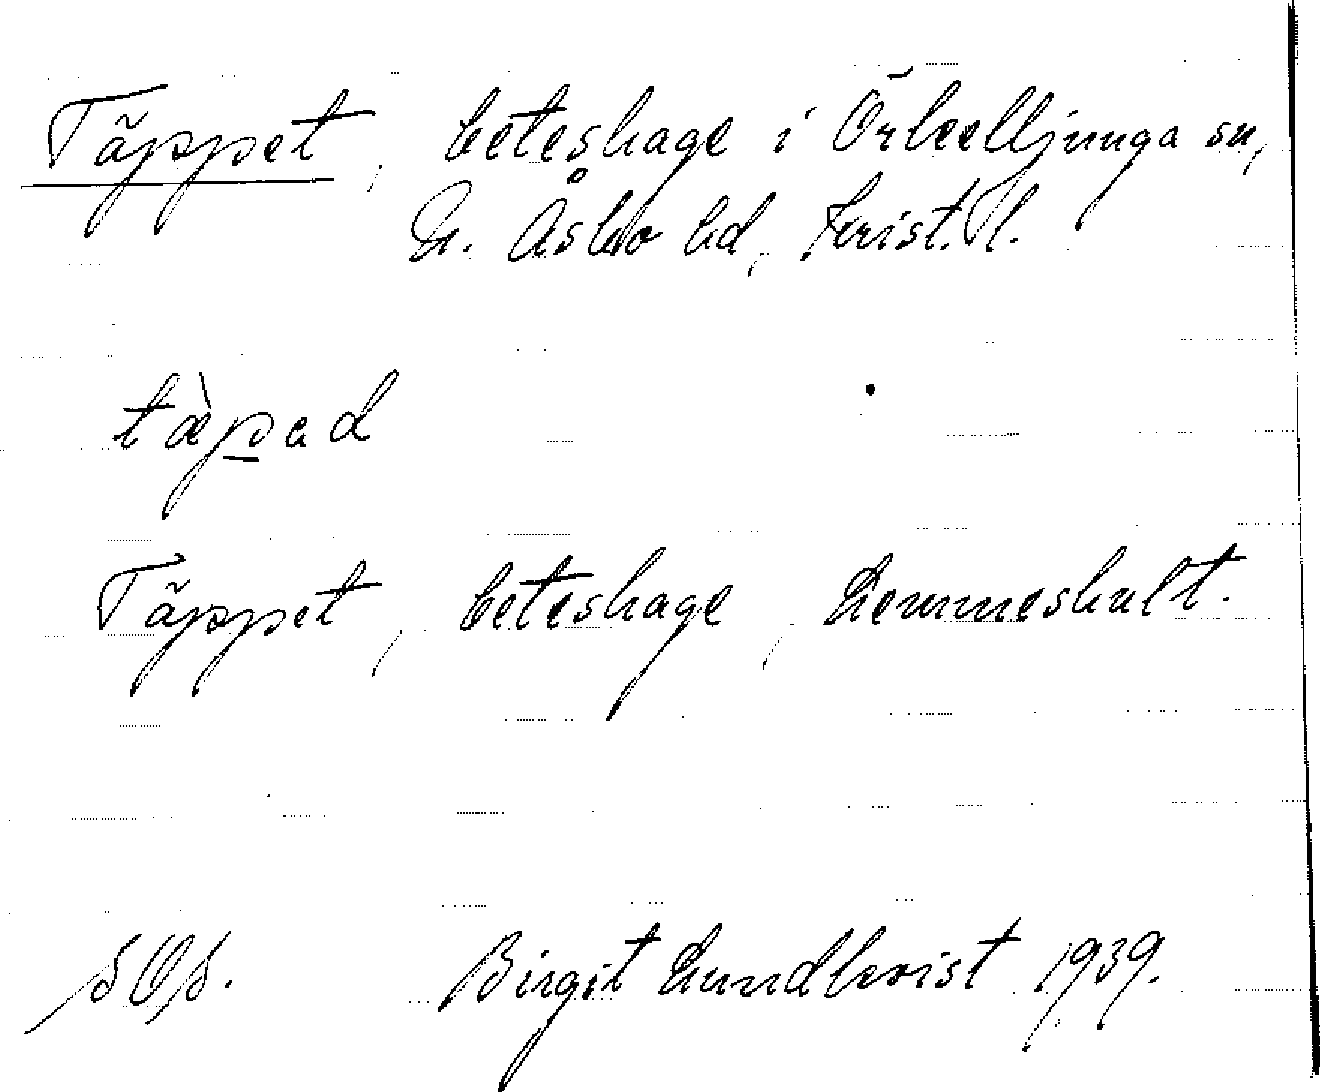 Täppet, beteshage i Örkelljunga sn,
N. Åsbo hd, Krist. l.
tæ̀pad
Täppet, beteshage, Lemmeshult.
SOS. Birgit Lundkvist 1939.